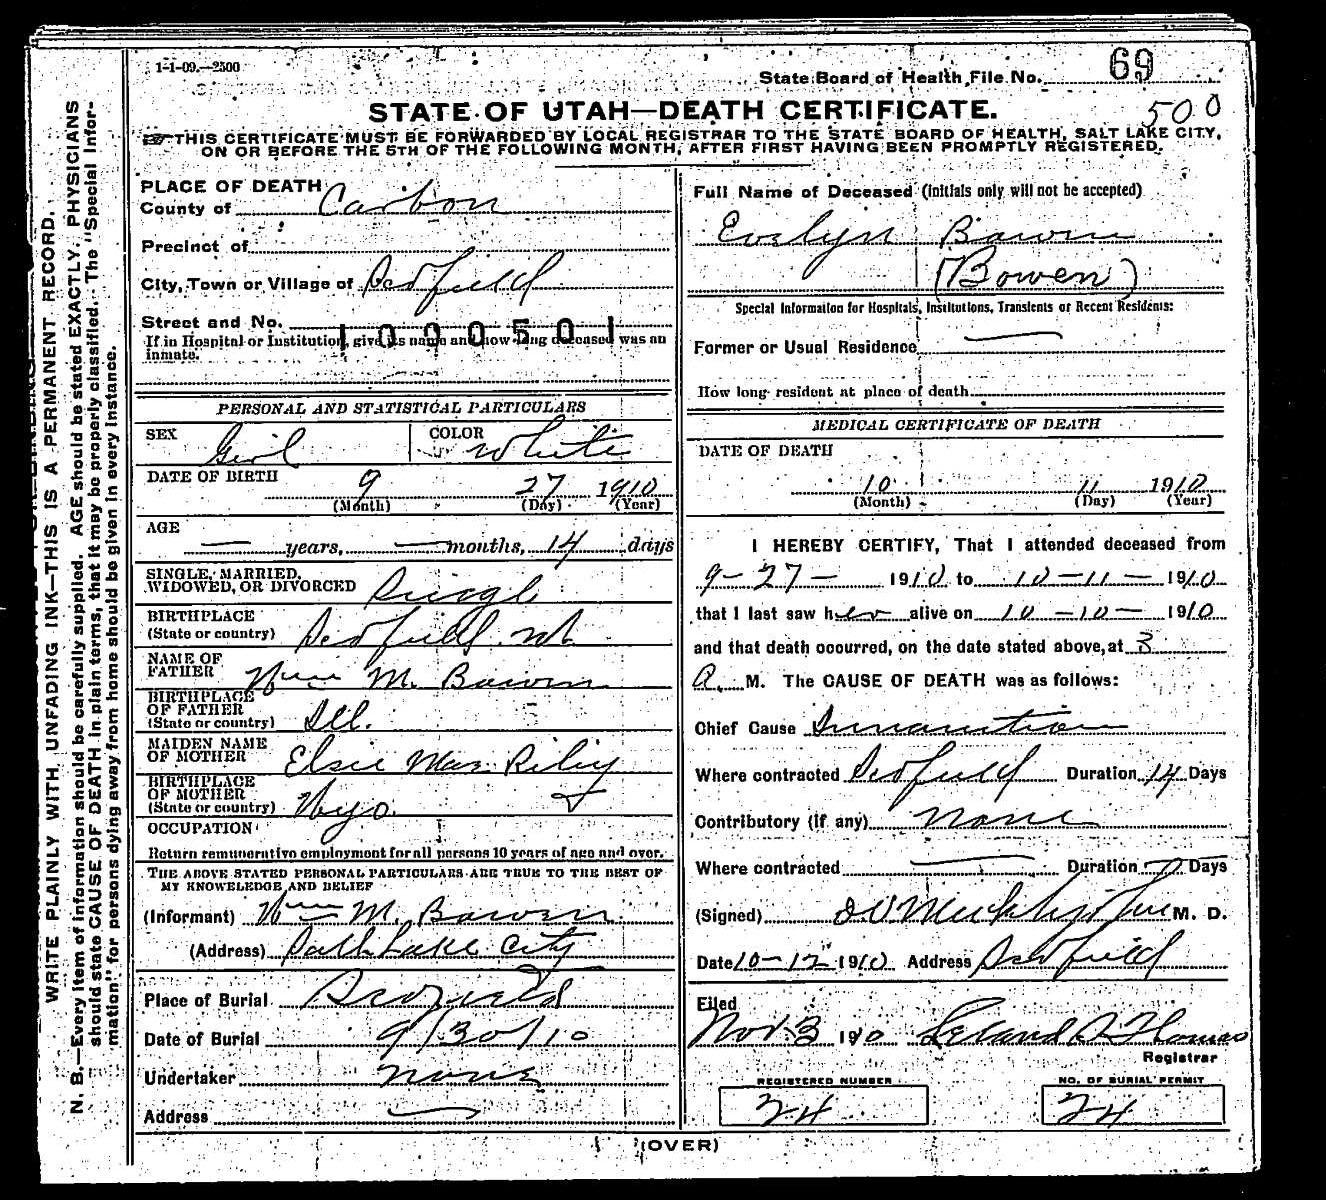 1-1-09.—2500
State Board of Health File No. 69
500
STATE OF UTAH—DEATH CERTIFICATE.
THIS CERTIFICATE MUST BE FORWARDED BY LOCAL REGISTRAR TO THE STATE BOARD OF HEALTH, SALT LAKE CITY,
ON OR BEFORE THE 5TH OF THE FOLLOWING MONTH, AFTER FIRST HAVING BEEN PROMPTLY REGISTERED.
WRITE PLAINLY WITH UNFADING INK—THIS IS A PERMANENT RECORD.
N. B.—Every item of information should be carefully supplied. AGE should be stated EXACTLY. PHYSICIANS
should state CAUSE OF DEATH in plain terms, that it may be properly classified. The "Special Infor-
mation" for persons dying away from home should be given in every instance.
PLACE OF DEATH
County of Carbon
Precinct of
City, Town or Village of Scofield
Street and No.
1000501
If in Hospital or Institution, give its name and how long deceased was an
inmate.
PERSONAL AND STATISTICAL PARTICULARS
SEX Girl COLOR White
DATE OF BIRTH 9 27 1910
(Month) (Day) (Year)
AGE
— years, — months, 14 days
SINGLE, MARRIED,
WIDOWED, OR DIVORCED Single
BIRTHPLACE
(State or country) Scofield Ut
NAME OF
FATHER Wm M. Bowen
BIRTHPLACE
OF FATHER
(State or country) Ill.
MAIDEN NAME
OF MOTHER Elsie May Riley
BIRTHPLACE
OF MOTHER
(State or country) Wyo.
OCCUPATION
Return remunerative employment for all persons 10 years of age and over.
THE ABOVE STATED PERSONAL PARTICULARS ARE TRUE TO THE BEST OF
MY KNOWLEDGE AND BELIEF
(Informant) Wm M. Bowen
(Address) Salt Lake City
Place of Burial Scofield
Date of Burial 9/30/10
Undertaker none
Address —
Full Name of Deceased (initials only will not be accepted)
Evelyn Bowen
(Bowen)
Special Information for Hospitals, Institutions, Transients or Recent Residents:
Former or Usual Residence —
How long resident at place of death
MEDICAL CERTIFICATE OF DEATH
DATE OF DEATH
10 11 1910
(Month) (Day) (Year)
I HEREBY CERTIFY, That I attended deceased from
9-27- 1910 to 10-11- 1910
that I last saw her alive on 10-10- 1910
and that death occurred, on the date stated above, at 3
A. M. The CAUSE OF DEATH was as follows:
Chief Cause Inanition
Where contracted Scofield Duration 14 Days
Contributory (if any) None
Where contracted — Duration — Days
(Signed) M. D.
Date 10-12 1910 Address Scofield
Filed
Nov 3 1910 Leland S Thomas
Registrar
REGISTERED NUMBER
24
NO. OF BURIAL PERMIT
24
(OVER)